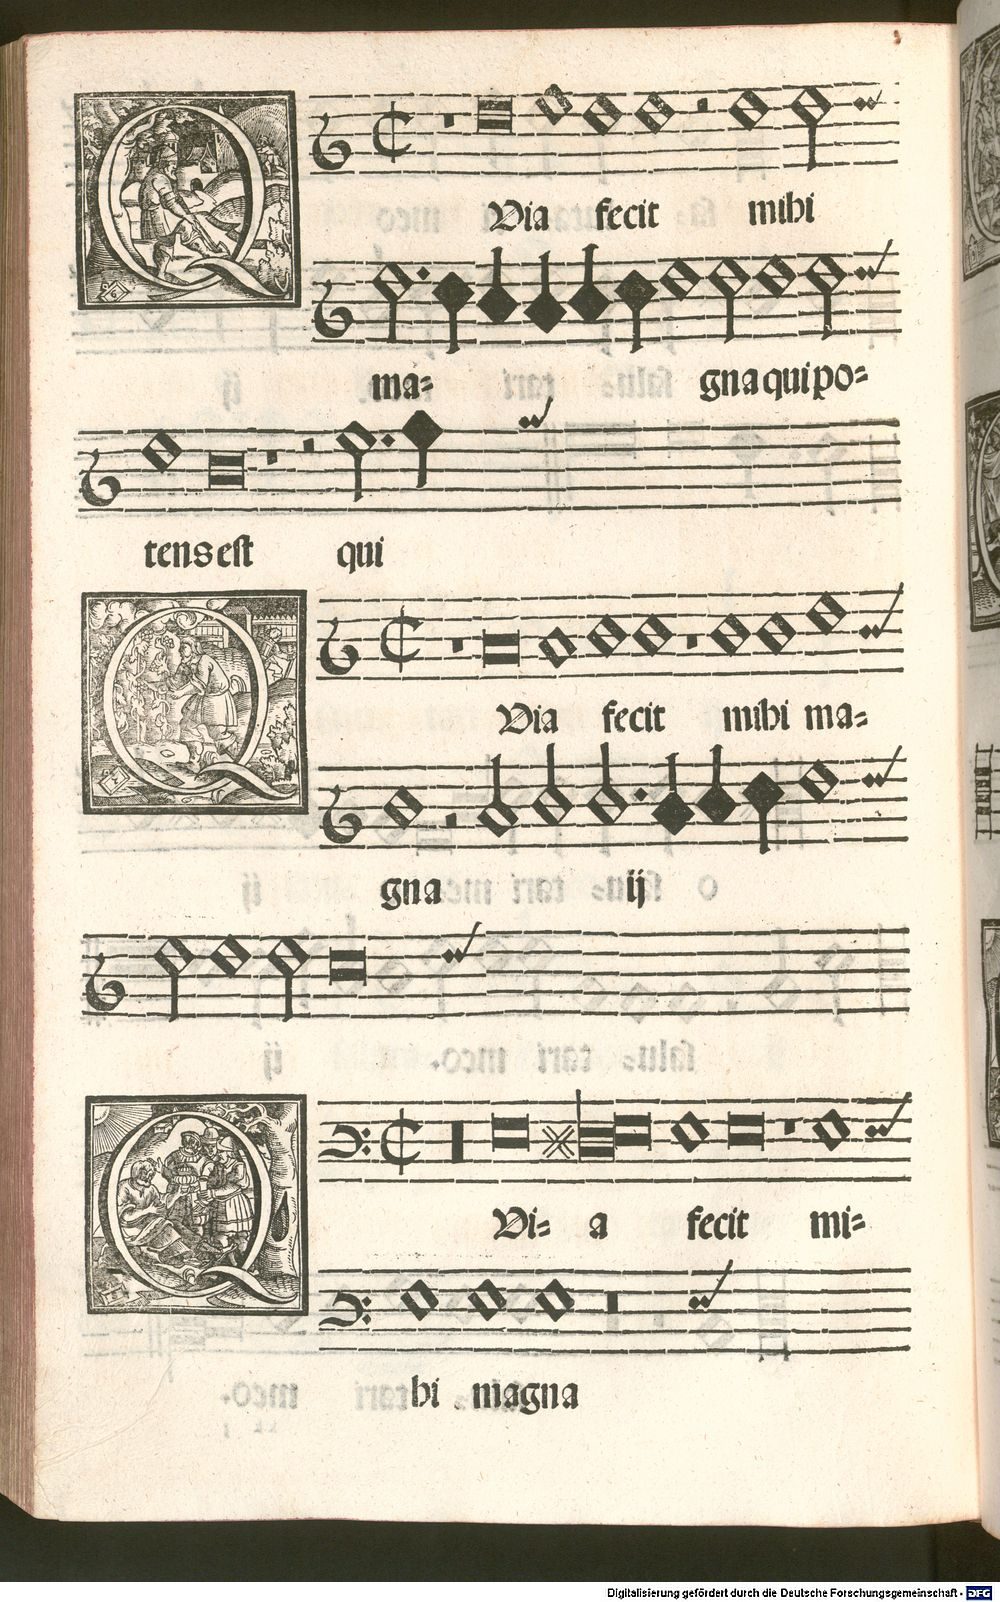 QVia fecit mihi
ma= gna qui po=
tens est qui
QVia fecit mihi ma=
gna ij
QVi= a fecit mi=
hi magna
Digitalisierung gefördert durch die Deutsche Forschungsgemeinschaft - DFG